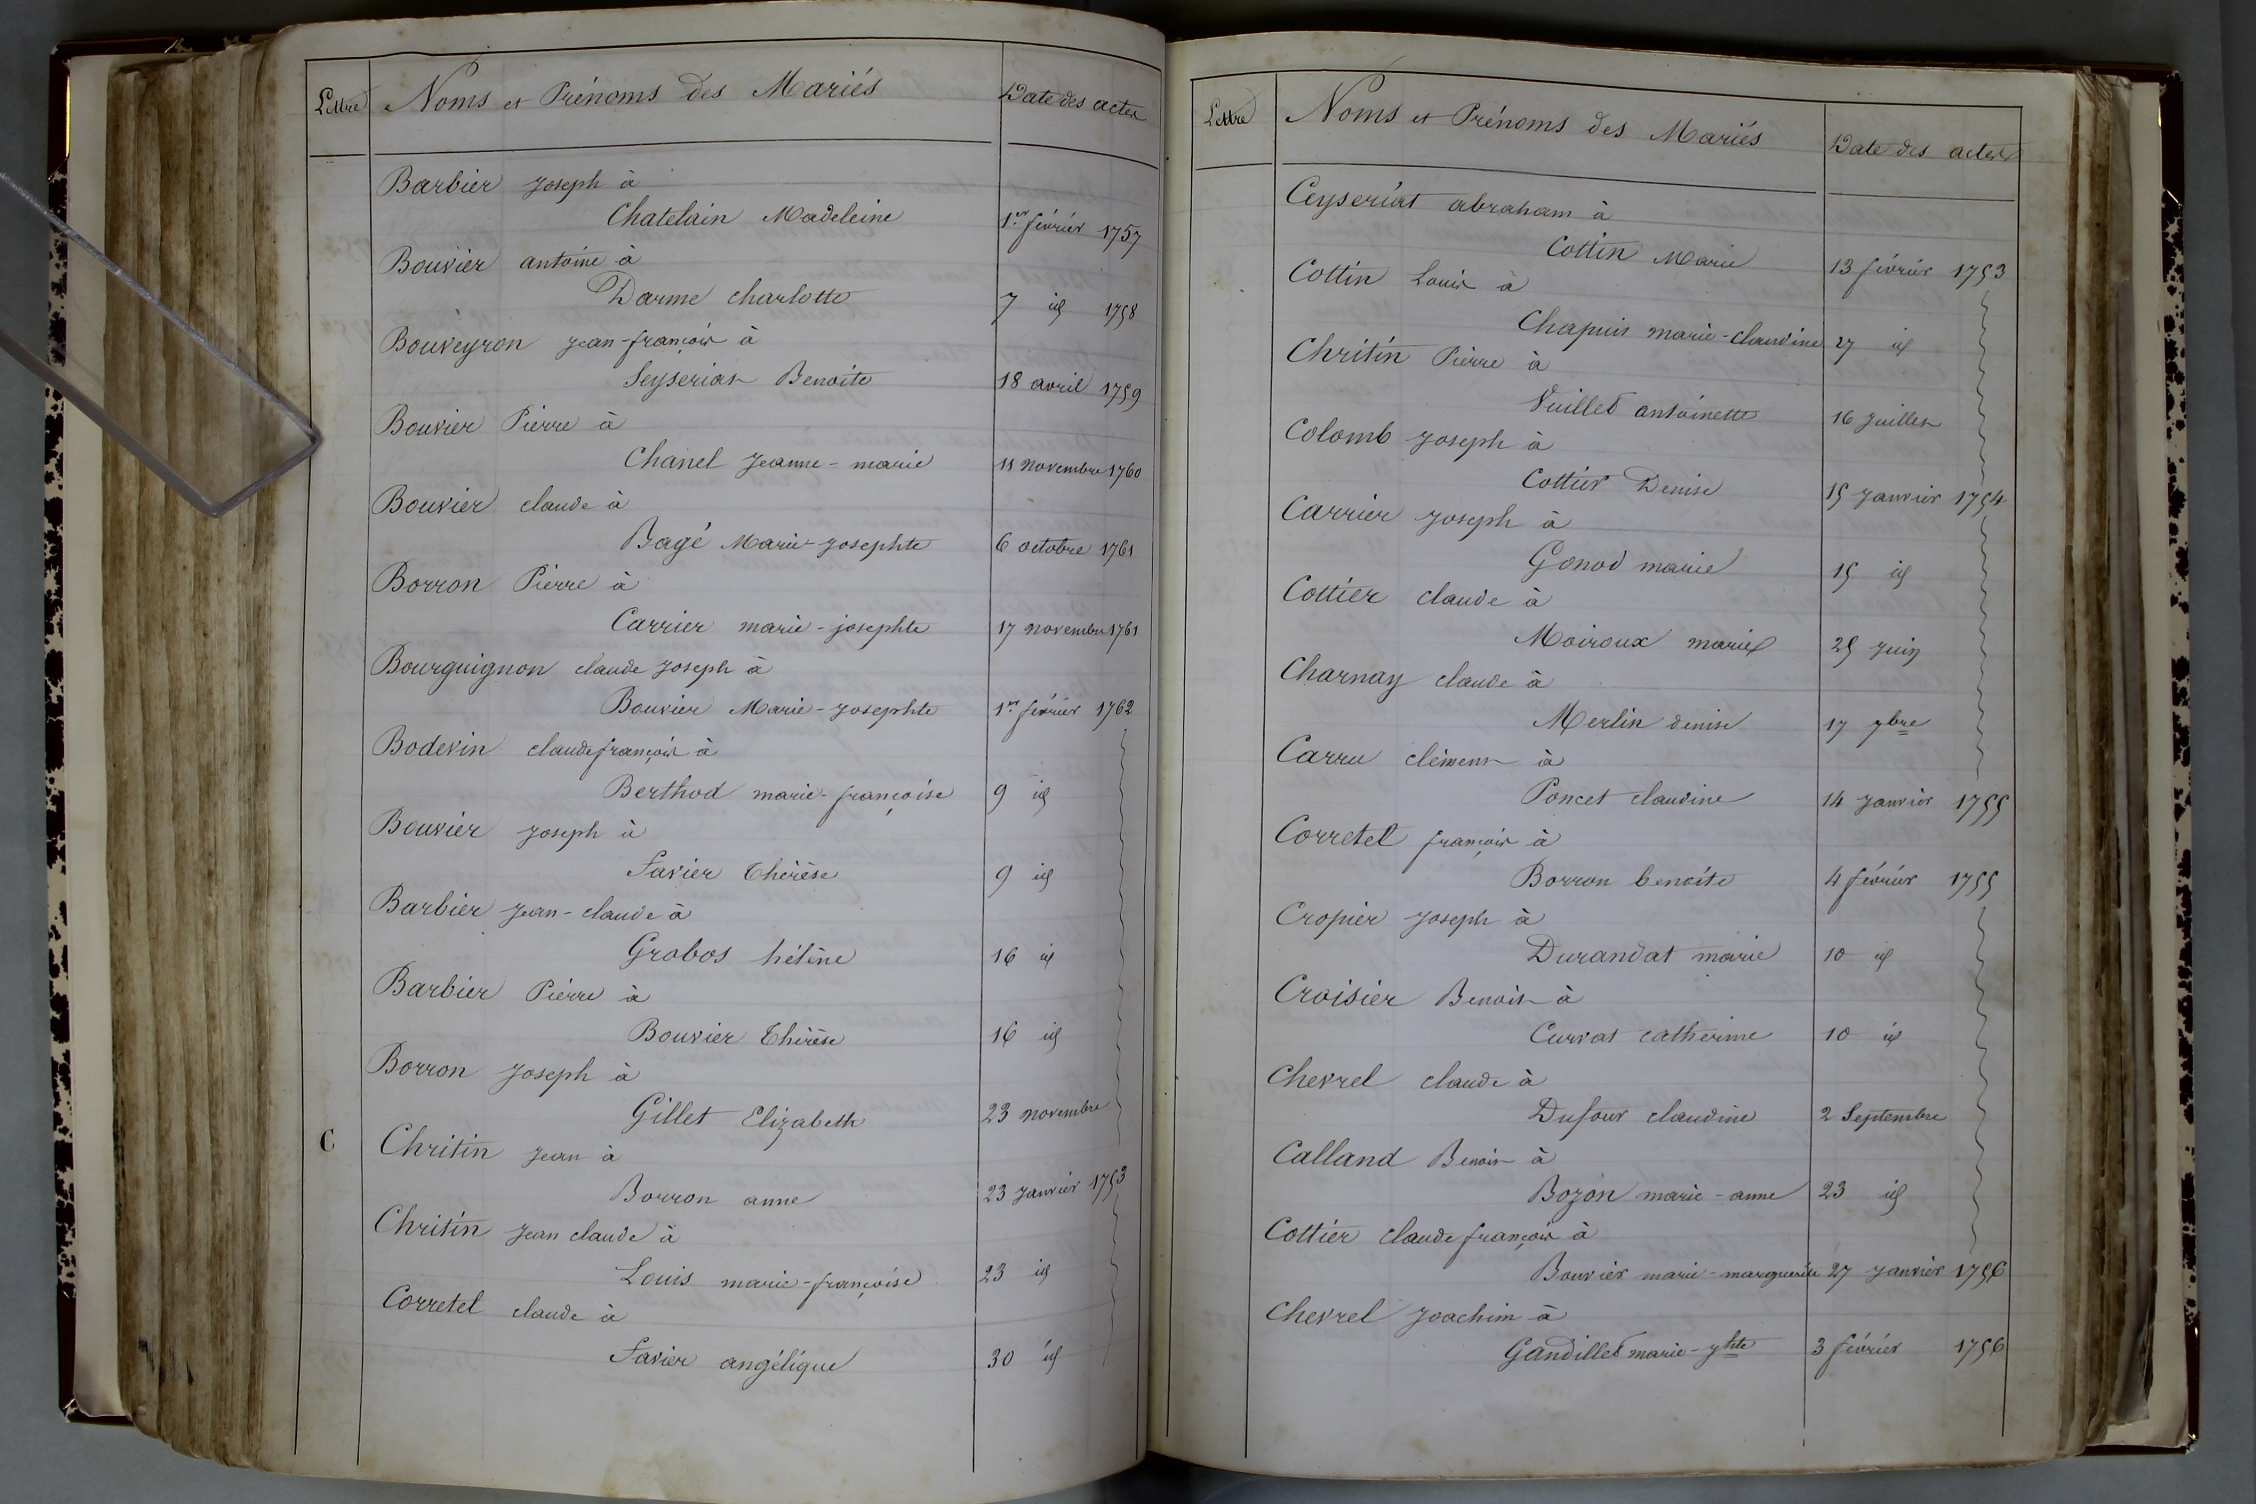 Lettre Noms et Prénoms des Mariés Date des actes
Barbier Joseph à
Chatelain Madeleine 1er février 1757
Bouvier antoine à
Darme charlotte 7 id 1758
Bouveyron Jean-françois à
Seyseriat Benoite 18 avril 1759
Bouvier Pierre à
Chanel Jeanne-marie 11 novembre 1760
Bouvier claude à
Bagé Marie-Josephte 6 octobre 1761
Borron Pierre à
Carrier marie-josephte 17 novembre 1761
Bourguignon claude Joseph à
Bouvier Marie-Josephte 1er février 1762
Bodevin claude françois à
Berthod marie-françoise 9 id
Bouvier Joseph à
Favier Thérèse 9 id
Barbier Jean-claude à
Grobos hélène 16 id
Barbier Pierre à
Bouvier Thérèse 16 id
Borron Joseph à
Gillet Elizabeth 23 novembre
C Chritin Jean à
Borron anne 23 Janvier 1753
Chritin Jean claude à
Louis marie-françoise 23 id
Corretel claude à
Favier angélique 30 id
Lettre Noms et Prénoms des Mariés Date des actes
Ceyseriat abraham à
Cottin Marie 13 février 1753
Cottin Louis à
Chapuis marie-claudine 27 id
Chritin Pierre à
Vuillet antoinette 16 Juillet
Colomb Joseph à
Cottier Denise 15 Janvier 1754
Carrier Joseph à
Gonod marie 15 id
Cottier claude à
Moiroux marie 25 Juin
Charnay claude à
Merlin denise 17 7bre
Carru clément à
Poncet claudine 14 Janvier 1755
Corretel françois à
Borron benoite 4 février 1755
Cropier Joseph à
Durandat marie 10 id
Croisier Benoit à
Curvat catherine 10 id
Chevrel claude à
Dufour claudine 2 Septembre
Calland Benoit à
Bozon marie-anne 23 id
Cottier claude françois à
Bouvier marie-marguerite 27 Janvier 1756
Chevrel Joachim à
Gandillet marie-Jhte 3 février 1756